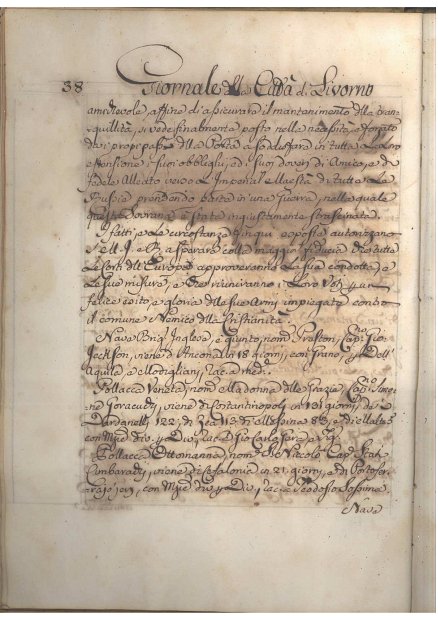 38 Giornale della Città di Livorno
amichevole, affine di assicurare il mantenimento della tran-
quillità, si vede finalmente posto nella necessità, e forzato
da i propi passi della Porta a soddisfare in tutta la loro
estensione i suoi obblighi, ed i suoi doveri di Amico, e di
fedele Alleato verso l'Imperial Maestà di tutte le
Russie prendendo parte in una guerra, nella quale
questa Sovrana è stata ingiustamente strascinata.
I fatti, e le circostanze di qui sopra esposte autorizano
S. M. I. e R. a sperare colla maggior fiducia che tutte
le Corti dell'Europa approveranno la sua condotta, e
le sue misure, e che riuniranno i loro Voti p. un
felice esito, a gloria delle sue Armi impiegate contro
il comune Nemico della Cristianità.
Nave Brig.e Inglese, è giunto, nom.o Preston, Cap.o Gio.
Jeckson, viene d'Ancona in 18 giorni, con grano, p. Dell'
Aquila, e Modigliani, rac. a med.i
Pollacca Veneta, nom.a la Madonna delle Grazie, Cap.o
Joracudi, viene di Costantinopoli in 131 giorni, da i
Dardanelli 122, di Zea 113, di Messina 83, e di Malta
con Mzie div. p. Div., rac. D. Gio Carlo
Pollacca Ottomanna, nom. S. Niccolò Cap.
Cimbaradi, viene di Cefalonia in 21 giorni, e di Portofer-
rajo, con Mzie div. p. Div., rac. a Teodosio
Nave